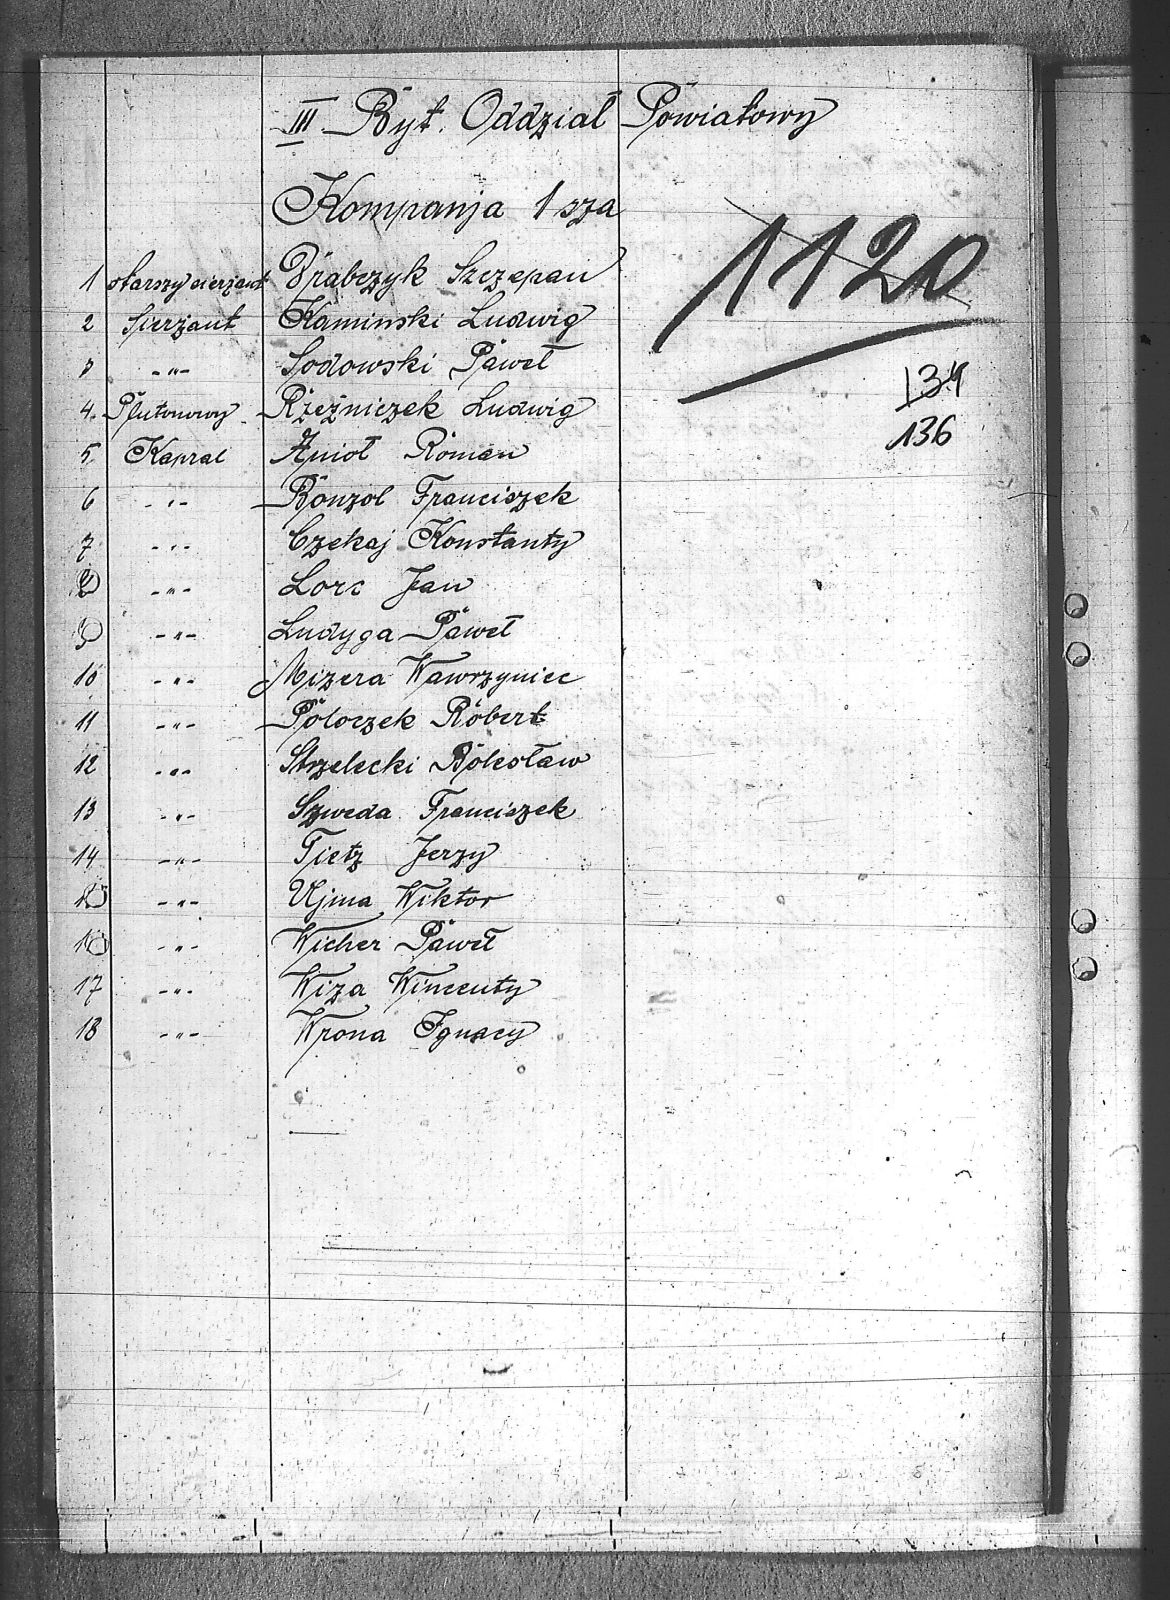 III Byt. Oddział Powiatowy
Kompanja 1 sza
1120
1 starszy sierżant Drabczyk Szczepan
2 Sierżant Kaminski Ludwig
3 -"- Sodowski Paweł
134
4. Plutonowy Rzeźniczek Ludwig
136
5 Kapral Anioł Roman
6 -"- Bonzol Franciszek
7 -"- Czekaj Konstanty
-"- Lorc Jan
-"- Ludyga Paweł
10 -"- Mizera Wawrzyniec
11 -"- Poloczek Robert
12 -"- Strzelecki Bolesław
13 -"- Szweda Franciszek
14 -"- Tietz Jerzy
15 -"- Ujma Wiktor
16 -"- Wicher Paweł
17 -"- Wiza Wincenty
18 -"- Wrona Ignacy